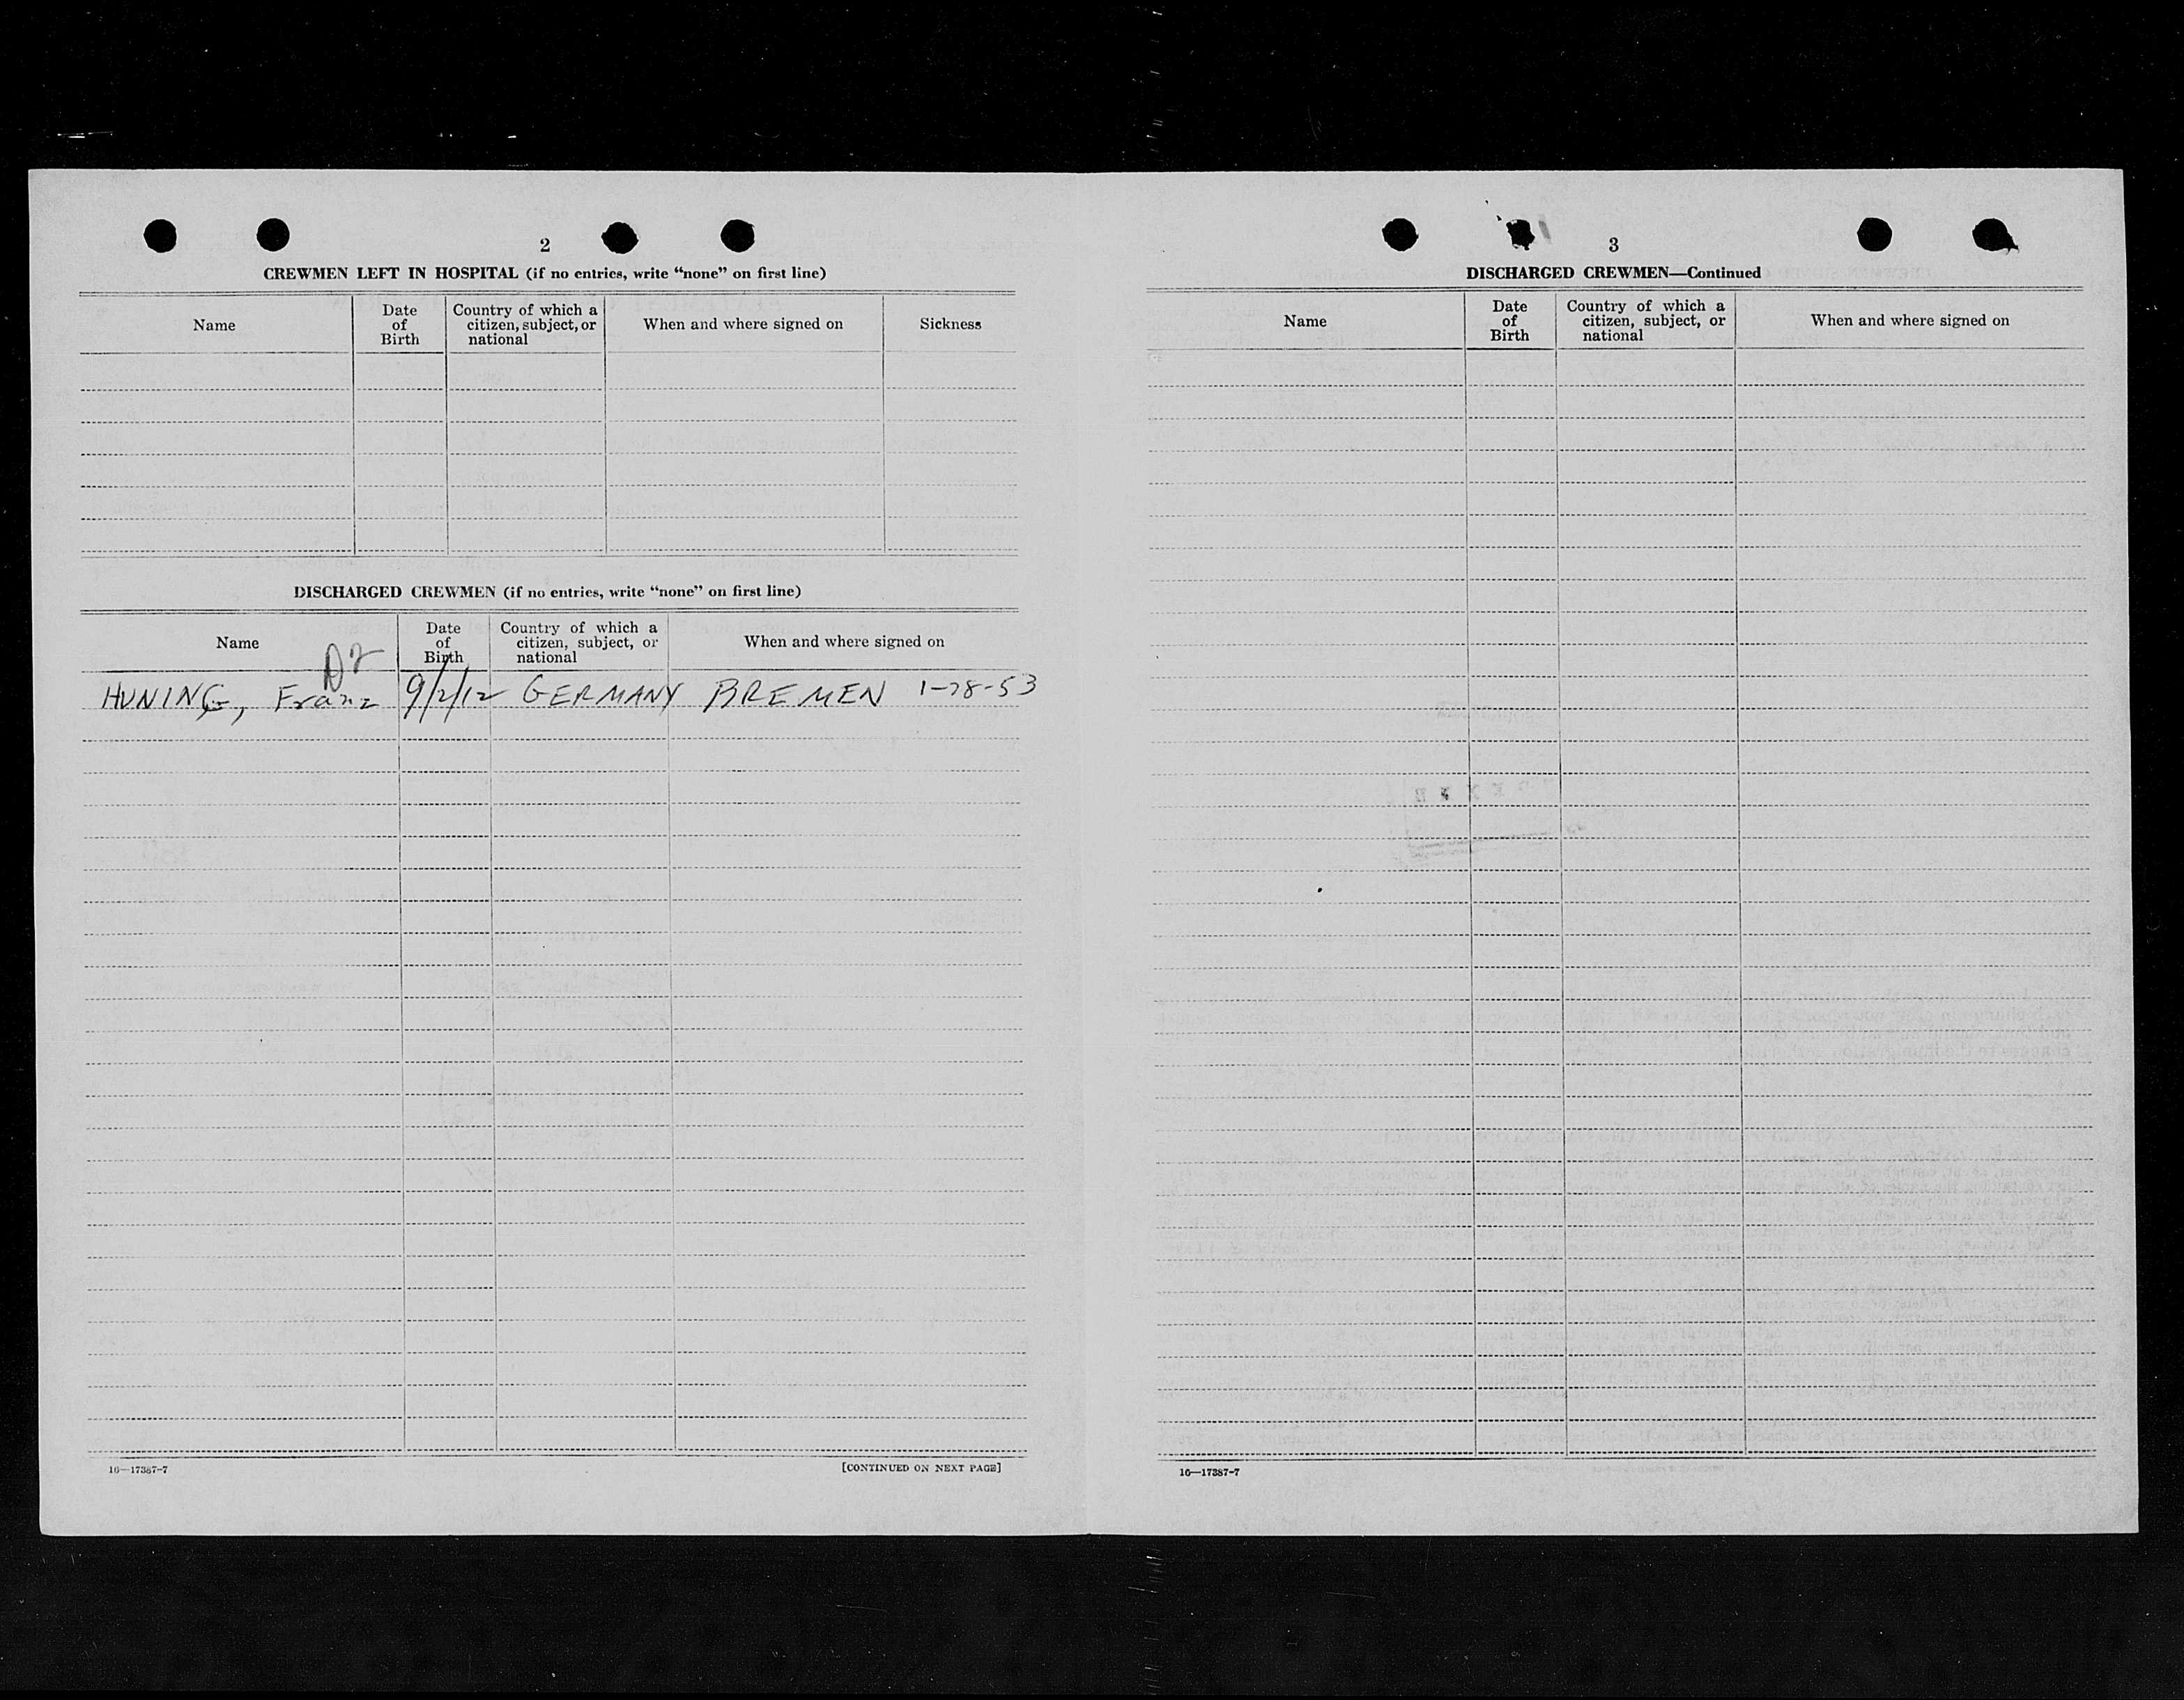 2
CREWMEN LEFT IN HOSPITAL (if no entries, write “none” on first line)
Name
Date of Birth
Country of which a citizen, subject, or national
When and where signed on
Sickness
DISCHARGED CREWMEN (if no entries, write “none” on first line)
Name
Date of Birth
Country of which a citizen, subject, or national
When and where signed on
HUNING, Franz 9/2/12 GERMANY BREMEN 1-28-53
16—17387-7 [CONTINUED ON NEXT PAGE]
3
DISCHARGED CREWMEN—Continued
Name
Date of Birth
Country of which a citizen, subject, or national
When and where signed on
16—17387-7